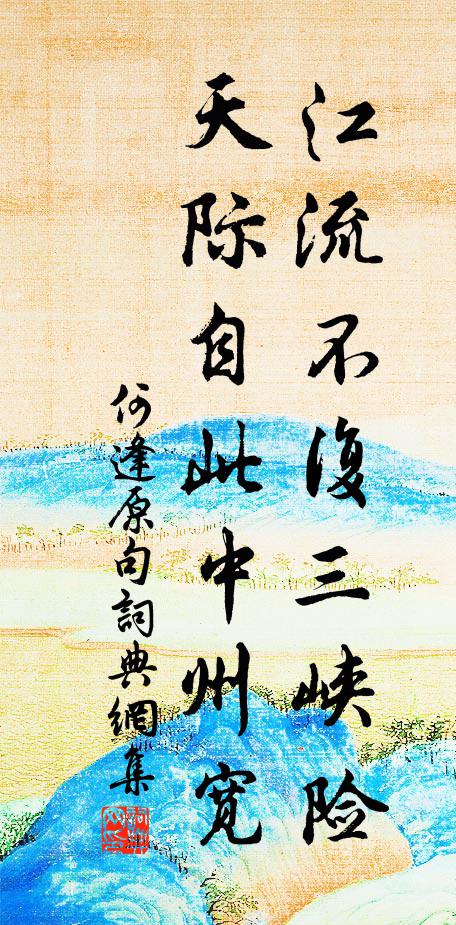 江流不復三峡险
天际自此中州宽
何逢原句詞典網集